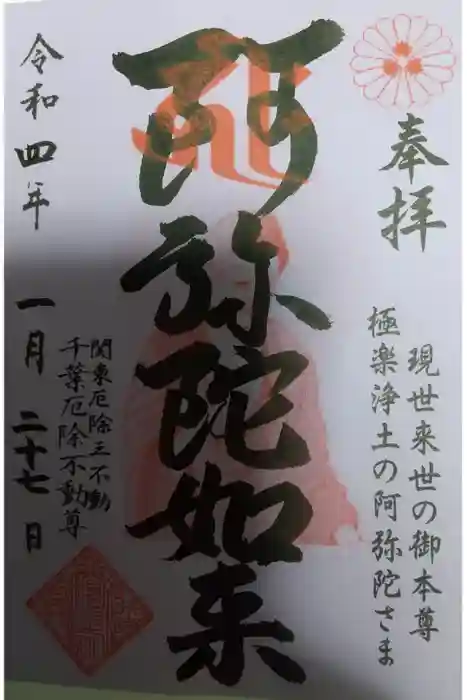 奉拝
現世来世の御本尊
極楽浄土の阿弥陀さま
阿弥陀如来
関東厄除三不動
千葉厄除不動尊
令和四年 一月 二十七日